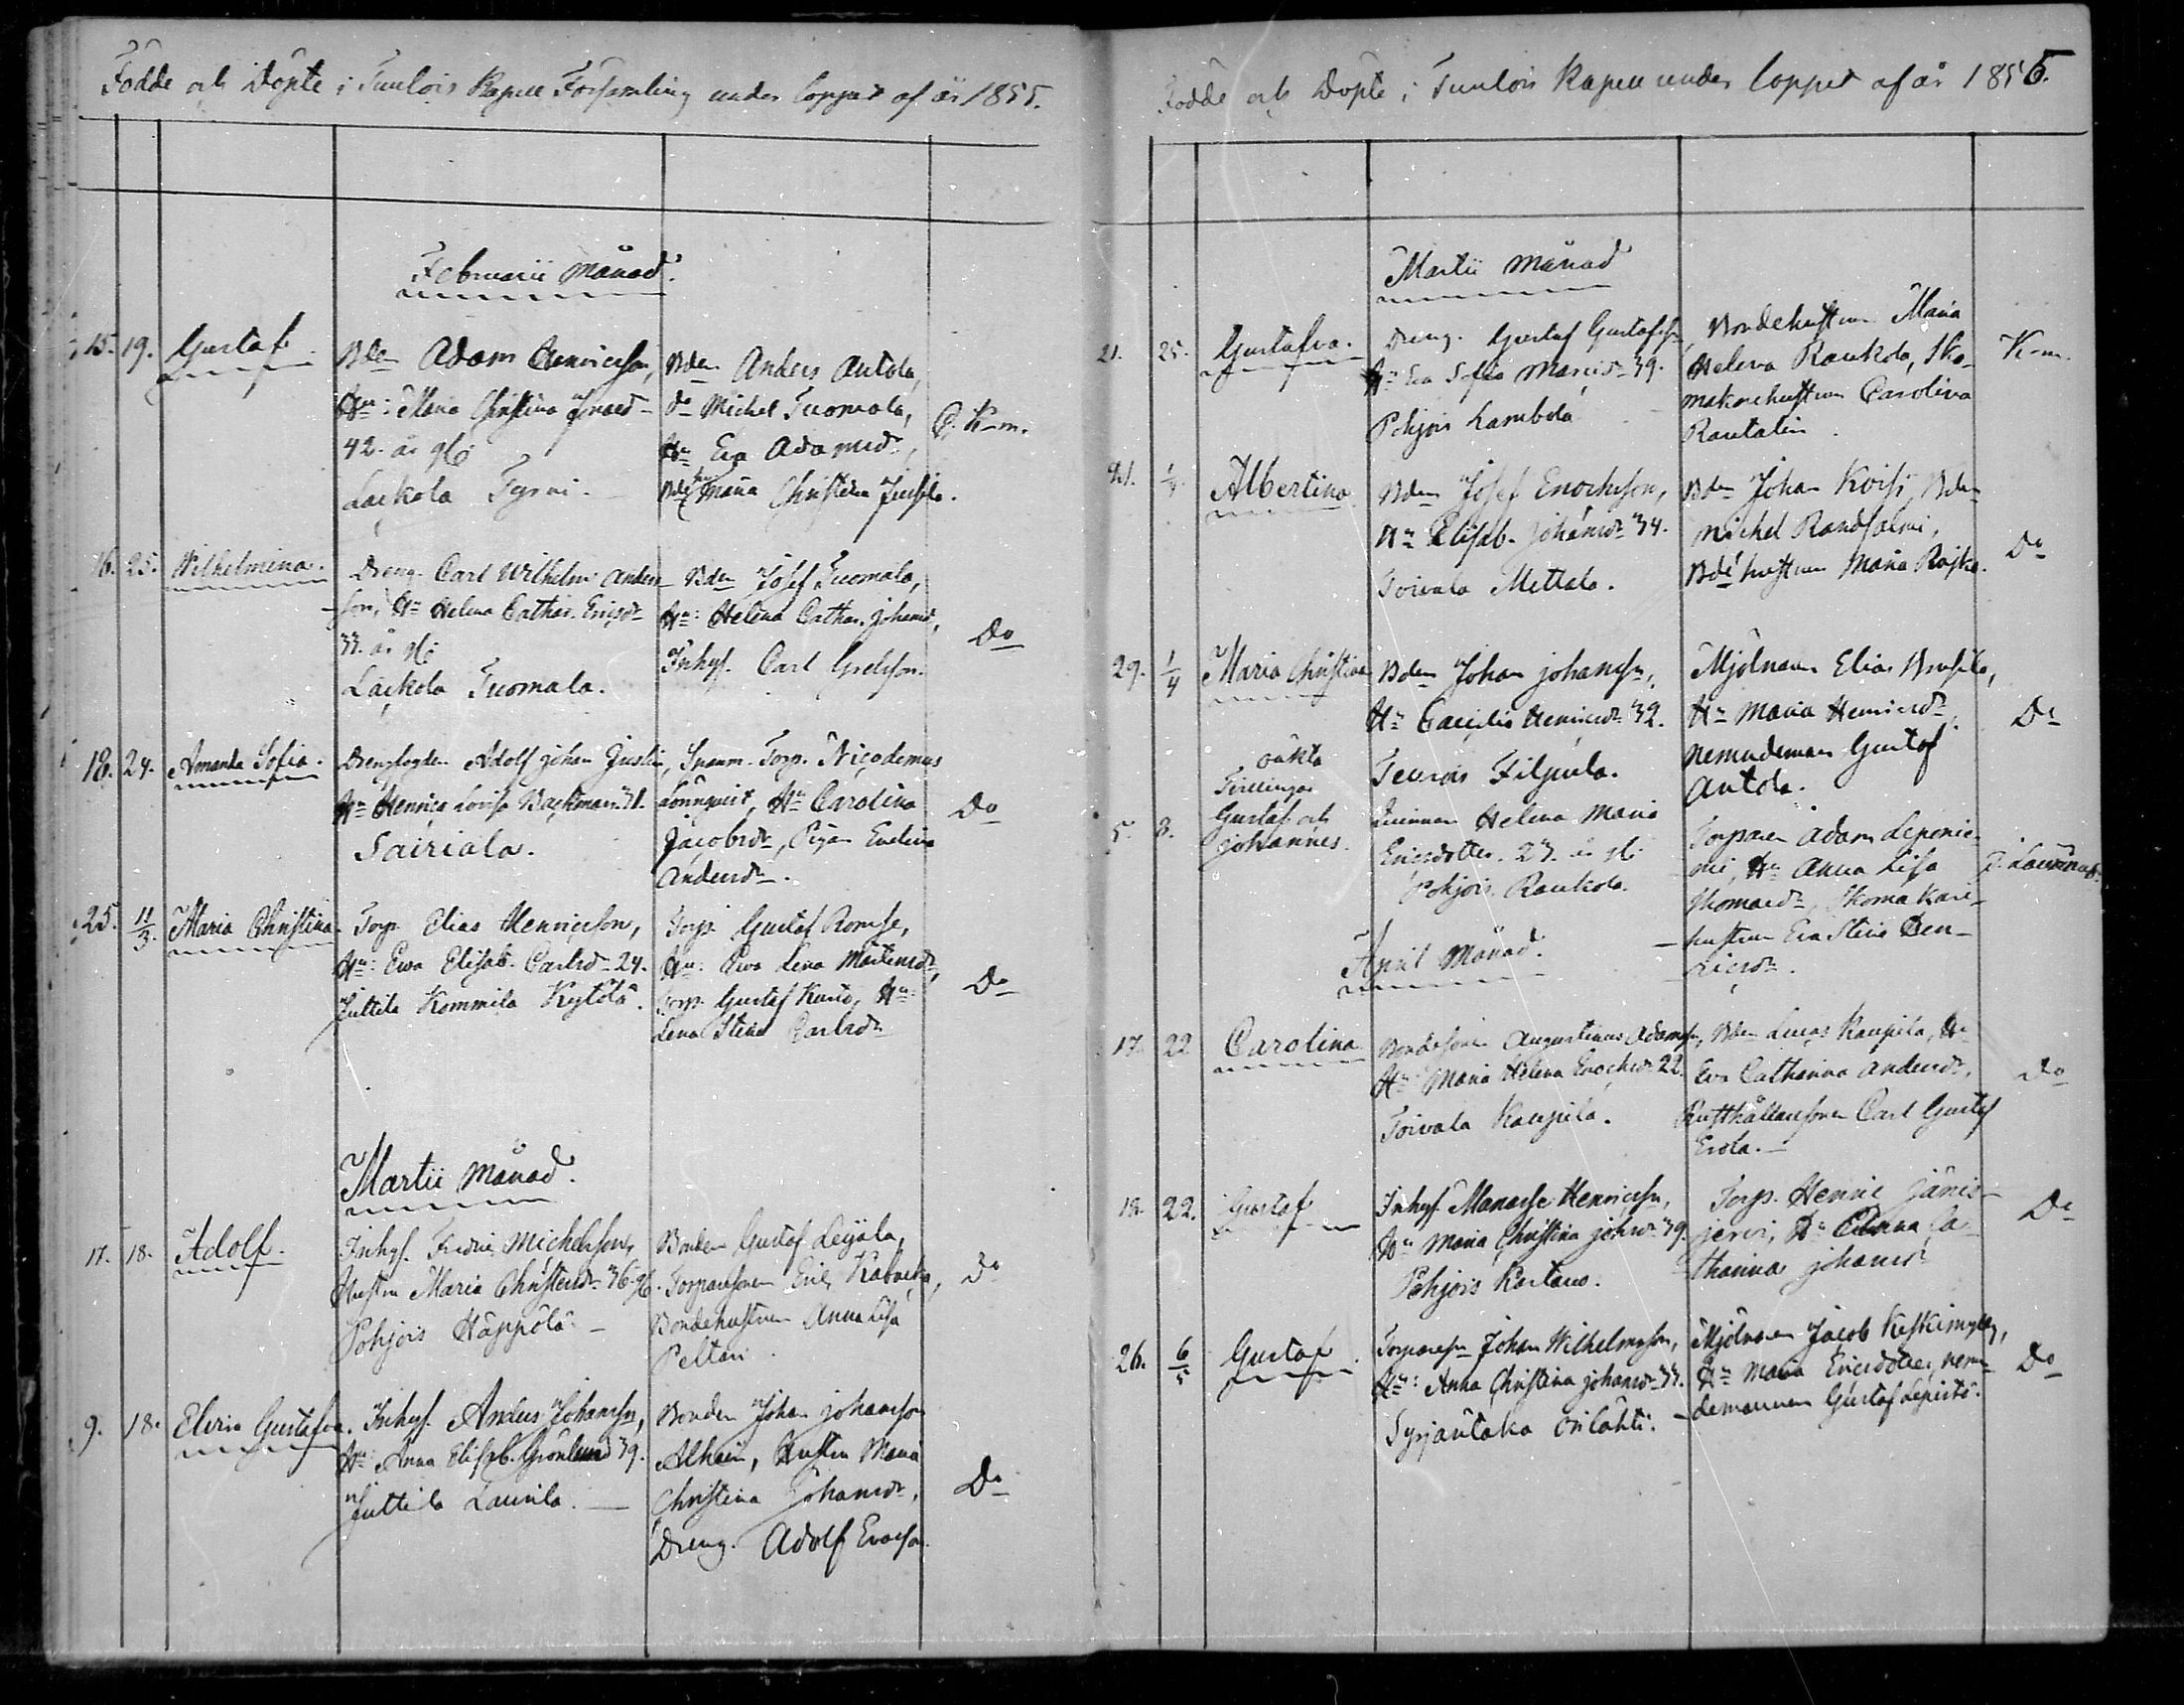 Födde och Döpte i Tuulois Kapell Församling under loppet af år 1855.
Februarii månad.
15. 19. Gustaf.
Bden Adam Henricsson,
Hu: Maria Christina
42. år gl:
Laikola Tyrni.
Bden Anders Autola,
do Michel Tuomola,
Hu Eva Adamsdr,
Maria Christina
C. K-m.
16. 25. Wilhelmina.
Dreng. Carl Wilhelm Anders-
son, Hu Helena Cathar. Ericsdr
33. år gl:
Laikola Tuomala.
Bden Josef Tuomala,
Hu: Helena Cathar. Johansdr,
Inhys. Carl
Do
18. 24. Amanda Sofia.
Drengfogden Adolf Johan Justin,
Hu Henrica Lovisa Backman 31.
Sairiala.
Torp. Nicodemus
Lönnqvist, Hu Carolina
Jacobsdr, Pigan Evelina
Andersdr.
Do
25. 11/3. Maria Christina
Torp. Elias Henricsson,
Hu: Ewa Elisab. Carlsdr 24.
Juttila Kommila Kytölä.
Torp. Gustaf
Hu: Ewa Lena Mårtensdr,
Torp. Gustaf Hu:
Lena Stina Carlsdr
Do
Martii månad.
17. 18. Adolf.
Inhys. Fredric Michelsson,
Hustru Maria Christersdr 36. gl.
Pohjois Häppölä
Bonden Gustaf Leijala,
Torparesonen Eric
Bondehustrun Anna Lisa
Peltari.
Do
9. 18. Elvira Gustafva.
Inhys. Anders Johansson,
Hu: Anna Elisab. Grönlund 39.
Juttila Laurila.
Bonden Johan Johansson
Alhain, Hustru Maria
Christina Johansdr,
Dreng. Adolf
Do
Födde och Döpte i Tuulois Kapell under loppet af år 1855.
Martii månad
21. 25. Gustafva.
Dreng. Gustaf Gustafsson,
Hu Eva Sofia 39.
Pohjois Lambola
Bondehustrun Maria
Helena Raukola, Sko-
makarehustrun Carolina
Rautalin.
K-m.
21. 1/4. Albertina.
Bden Josef Enochsson,
Hu Elisab. Johansdr 34.
Toivala Mettala.
Bden Johan Bden
Michel
Bdehustrun Maria
Do
29. 1/4 Maria Christina
Bden Johan Johansson,
Hu Caecilia Henricsdr 32.
Teurois Filpula.
Mjölnaren Elias
Hu Maria Henricsdr,
Nemndeman Gustaf
Autola.
Do
oäkta
Tvillingar
5. 8. Gustaf och
Johannes.
Qvinnan Helena Maria
Ericsdotter. 23. år gl:
Pohjois Raukola.
Torparen Adam Lepenie-
mi, Hu Anna Lisa
Thomaedr, Skomakare-
hustrun Eva Stina Hen-
ricsdr.
April månad.
17. 22 Carolina
Bondesonen Augustinus Adamsson,
Hu: Maria Helena Enochsdr 22.
Toivala Kaupila.
Bden Lucas Kaupila, Hu
Eva Catharina Andersdr,
Rusthållaresonen Carl Gustaf
Erola.
Do
18. 22. Gustaf
Inhys. Manasse Henricsson,
Hu Maria Christina Johsdr 39.
Pohjois Kartano.
Torp. Henric Jänis-
jervi, Hu Anna Ca-
tharina Johansdr
Do
26. 6/5 Gustaf.
Torpareson Johan Wilhelmsson,
Hu: Anna Christina Johansdr 33.
Syrjäntaka Orilahti.
Mjölnaren Jacob Keskimylly,
Hu Maria Ericsdotter, Nemn-
demannen Gustaf Lepistö.
Do